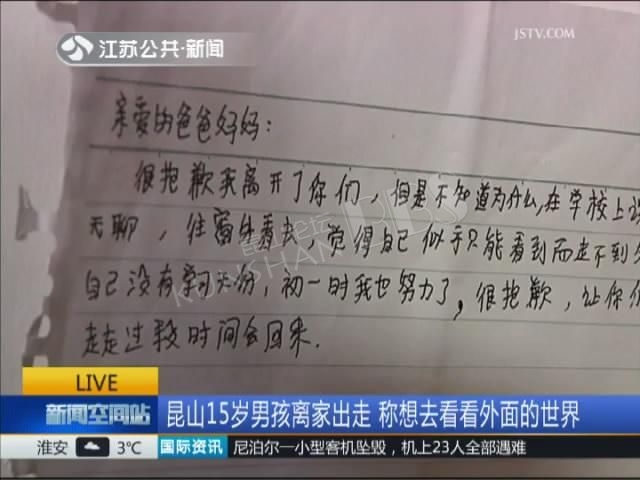 江苏公共·新闻
JSTV.COM
亲爱的爸爸妈妈：
很抱歉我离开了你们，但是不知道为什么，在学校上
无聊，往窗外看去，觉得自己似乎只能看到而走不到
自己没有学习天份，初一时我也努力了，很抱歉，让你
走走过段时间会回来.
昆山论坛
KUNSHAN BBS
LIVE
新闻空间站
昆山15岁男孩离家出走 称想去看看外面的世界
淮安 3℃ 国际资讯 尼泊尔一小型客机坠毁，机上23人全部遇难